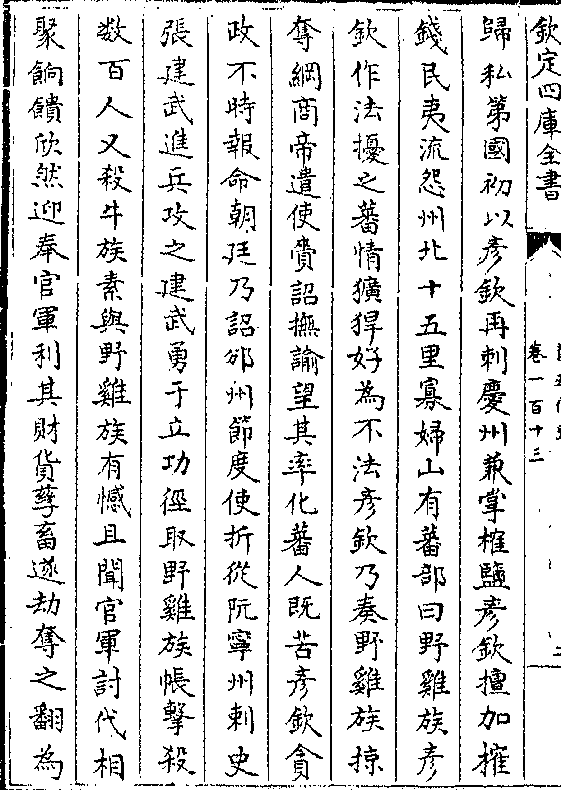 欽定四庫全書
卷一百十三
歸私第國初以彥欽再刺慶州兼掌榷鹽彥欽擅加榷
錢民夷流怨州北十五里寡婦山有蕃部曰野雞族彥
欽作法擾之蕃情獷猂好為不法彥欽乃奏野雞族掠
奪綱商帝遣使賫詔撫諭望其率化蕃人既苦彥欽貪
政不時報命朝廷乃詔邠州節度使折從阮寧州刺史
張建武進兵攻之建武勇于立功徑取野雞族帳擊殺
数百人又殺牛族素與野雞族有憾且聞官軍討代相
聚餉饋欣然迎奉官軍利其財貨孳畜遂劫奪之翻為